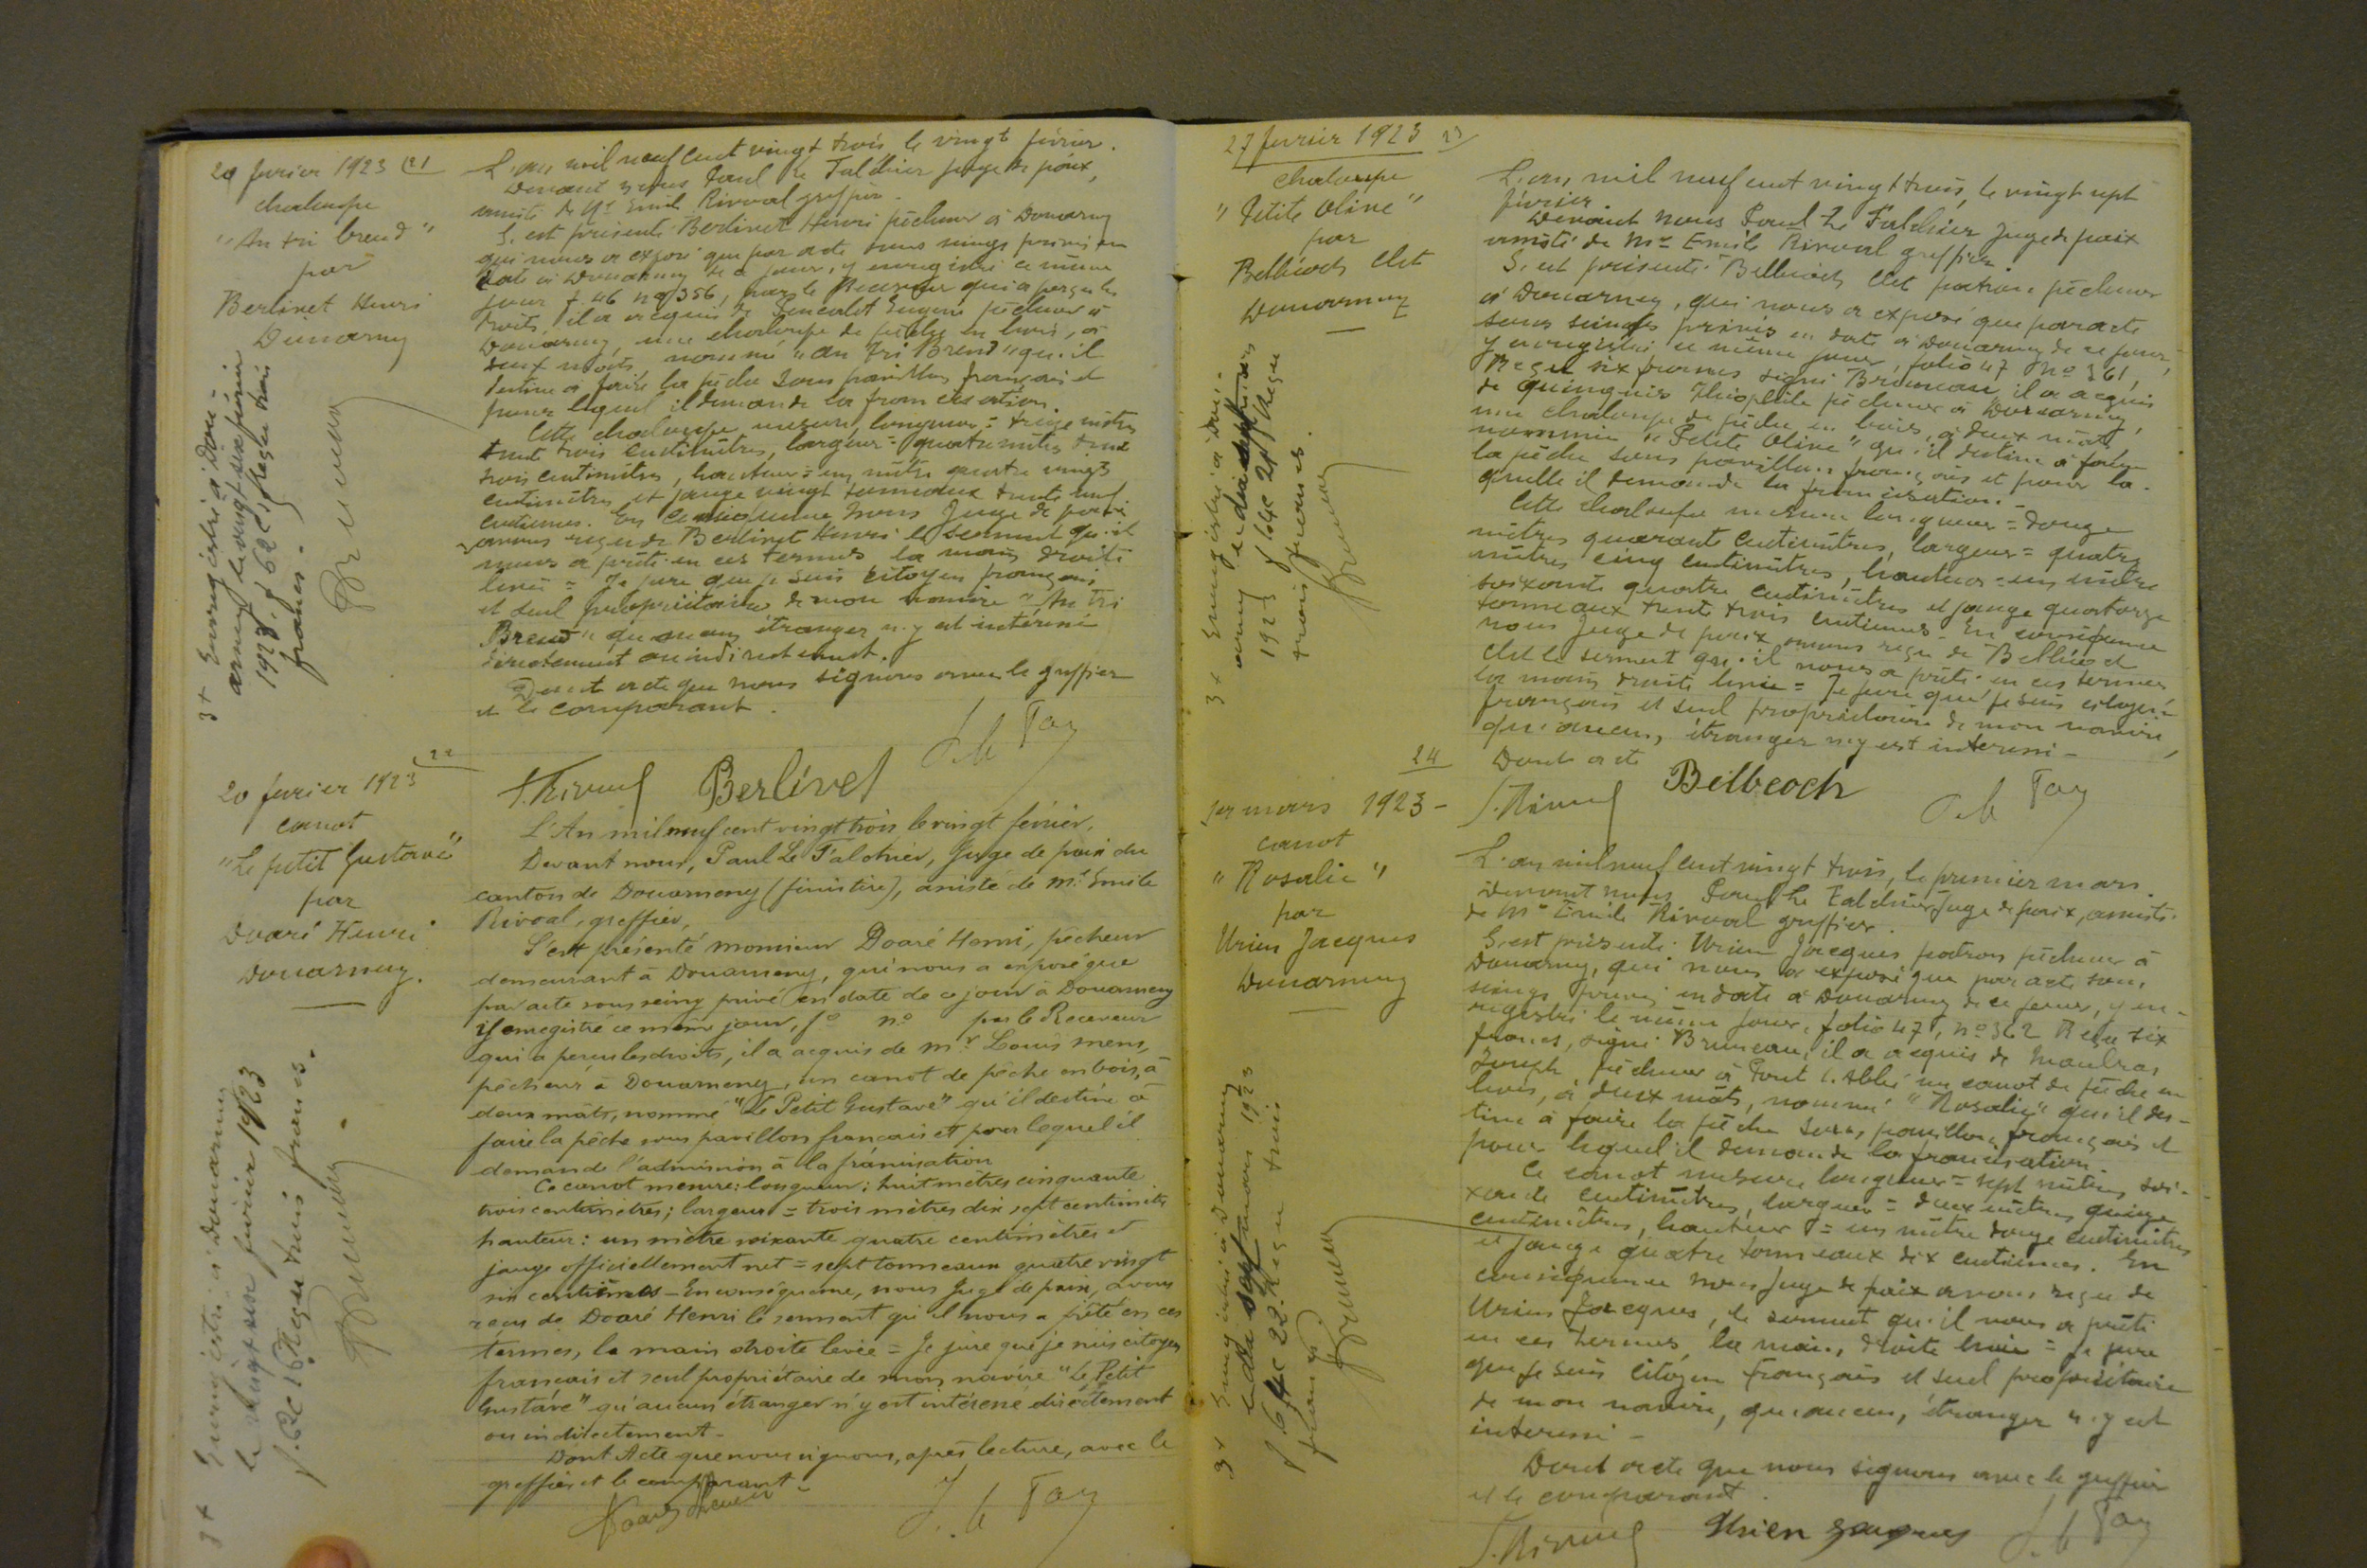 20 fevrier 1923 21
chaloupe
"An tri breud"
par
Berlivet Henri
Douarnez
L'an mil neuf cent vingt trois, le vingt février.
Devant nous Paul Le Falchier juge de paix,
assisté de Mr Emile Rivoal greffier.
S'est présenté Berlivet Henri pêcheur à Douarnez
qui nous a exposé que par acte sous seings privés en
date à Douarnez de ce jour, y enregistré ce même
jour f. 46 no 356, par le Receveur qui a perçu les
droits, il a acquis de Eugène pêcheur à
Douarnez, une chaloupe de pêche en bois, à
deux mâts nommé "An Tri Breud" qu'il
destine à faire la pêche sous pavillon français et
pour lequel il demande la francisation.
Cette chaloupe mesure, longueur = treize mètres
trente trois centimètres, largeur = quatre mètres trente
trois centimètres, hauteur = un mètre quatre vingt
centimètres et jauge vingt tonneaux trente neuf
centièmes. En conséquence nous Juge de paix
avons reçu de Berlivet Henri le serment qu'il
nous a prêté en ces termes la main droite
levée = Je jure que je suis citoyen français
et seul propriétaire de mon navire "An Tri
Breud" qu'aucun étranger n'y est intéressé
directement ou indirectement.
Dont acte que nous signons avec le greffier
et le comparant.
E. Rivoal Berlivet P. le Fay
3+ Enregistré à Douarnez le vingt six février
1923, f 62 c 15 Reçu trois
francs.
Bruneau
22
20 fevrier 1923
canot
"Le petit Gustave"
par
Doaré Henri
Douarnez.
L'An mil neuf cent vingt trois le vingt février,
Devant nous, Paul Le Falchier, Juge de paix du
canton de Douarnenez (finistère), assisté de Mr Emile
Rivoal, greffier,
S'est présenté monsieur Doaré Henri, pêcheur
demeurant à Douarnenez, qui nous a exposé que
par acte sous seing privé en date de ce jour à Douarnenez
y enregistré ce même jour, fo no par le Receveur
qui a perçu les droits, il a acquis de Mr Louis Mens,
pêcheur à Douarnenez, un canot de pêche en bois, à
deux mâts, nommé "Le Petit Gustave" qu'il destine à
faire la pêche sous pavillon français et pour lequel il
demande l'admission à la francisation
Ce canot mesure: longueur: huit mètres cinquante
trois centimètres; largeur = trois mètres dix sept centimètres
hauteur: un mètre soixante quatre centimètres et
jauge officiellement net = sept tonneaux quatre vingt
six centièmes - En conséquence, nous Juge de paix, avons
reçu de Doaré Henri le serment qu'il nous a prêté en ces
termes, la main droite levée = Je jure que je suis citoyen
français et seul propriétaire de mon navire "Le Petit
Gustave" qu'aucun étranger n'y est intéressé directement
ou indirectement -
Dont Acte que nous signons, après lecture, avec le
greffier et le comparant -
Doaré Henri P. le Fay
3+ Enregistré à Douarnenez
le vingt six février 1923
f. 62 c 16 Reçu trois francs.
Bruneau
27 fevrier 1923 23
chaloupe
"Petite Oline"
par
Belbéoch Clet
Douarnez
L'an mil neuf cent vingt trois, le vingt sept
février.
Devant nous Paul Le Falchier Juge de paix
assisté de Mr Emile Rivoal greffier.
S'est présenté: Belbéoch Clet patron pêcheur
à Douarnez, qui nous a exposé que par acte
sous seings privés en date à Douarnez de ce jour,
y enregistré ce même jour, folio 47 No 361,
Reçu six francs signé Bruneau il a acquis
de Quinquis Théophile pêcheur à Douarnez,
une chaloupe de pêche en bois, à deux mâts,
nommée "Petite Oline" qu'il destine à faire
la pêche sous pavillon français et pour la-
quelle il demande la francisation. -
Cette chaloupe mesure longueur = douze
mètres quarante centimètres, largeur = quatre
mètres cinq centimètres, hauteur = un mètre
soixante quatre centimètres et jauge quatorze
tonneaux trente trois centièmes - En conséquence
nous Juge de paix avons reçu de Belbéoch
Clet le serment qu'il nous a prêté en ces termes
la main droite levée = Je jure que je suis citoyen
français et seul propriétaire de mon navire,
qu'aucun étranger n'y est intéressé -
Dont acte
E. Rivoal Belbeoch P. le Fay
3+ Enregistré à Douar-
1923 f 64 c 21 Reçu
trois francs.
Bruneau
24
1er mars 1923 -
canot
"Rosalie"
par
Urien Jacques
Douarnenez
L'an mil neuf cent vingt trois, le premier mars.
Devant nous Paul Le Falchier Juge de paix, assisté
de Mr Emile Rivoal greffier.
S'est présenté: Urien Jacques patron pêcheur à
Douarnez, qui nous a exposé que par acte sous
seings privés en date à Douarnez de ce jour, y en-
registré le même jour, folio 47, no 362 Reçu six
francs, signé Bruneau, il a acquis de
Joseph pêcheur à Pont l'Abbé un canot de pêche en
bois, à deux mâts, nommé "Rosalie" qu'il des-
tine à faire la pêche sous pavillon français et
pour lequel il demande la francisation.
Ce canot mesure longueur = sept mètres soi-
xante centimètres, largeur = deux mètres quinze
centimètres, hauteur = un mètre douze centimètres
et jauge quatre tonneaux dix centièmes. En
conséquence nous Juge de paix avons reçu de
Urien Jacques, le serment qu'il nous a prêté
en ces termes, la main droite levée = Je jure
que je suis citoyen français et seul propriétaire
de mon navire, qu'aucun étranger n'y est
intéressé -
Dont acte que nous signons avec le greffier
et le comparant.
E. Rivoal Urien Jacques P. le Fay
3+ Enregistré à Douarnenez
le mars 1923
f 64 c 22. Reçu trois
francs
Bruneau